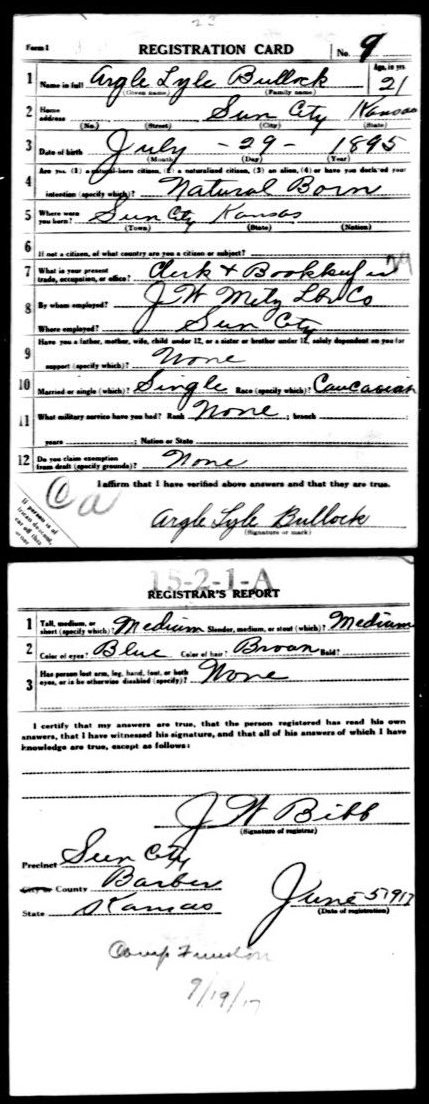 23
Form 1 REGISTRATION CARD No. 9
1 Name in full Argle Lyle Bullock Age, in yrs 21
(Given name) (Family name)
2 Home address Sun City Kansas
(No.) (Street) (City) (State)
3 Date of birth July - 29 - 1895
(Month) (Day) (Year)
4 Are you (1) a natural-born citizen, (2) a naturalized citizen, (3) an alien, (4) or have you declared your
intention (specify which)? Natural Born
5 Where were you born? Sun City Kansas
(Town) (State) (Nation)
6 If not a citizen, of what country are you a citizen or subject?
7 What is your present trade, occupation, or office? Clerk + Bookkeeper
8 By whom employed? J W Metz Lbr Co
Where employed? Sun City
9 Have you a father, mother, wife, child under 12, or a sister or brother under 12, solely dependent on you for
support (specify which)? None
10 Married or single (which)? Single Race (specify which)? Caucasian
11 What military service have you had? Rank None ; branch
years ; Nation or State
12 Do you claim exemption from draft (specify grounds)? None
I affirm that I have verified above answers and that they are true.
Argle Lyle Bullock
(Signature or mark)
If person is of
African descent,
cut off this
corner
15-2-1-A
REGISTRAR'S REPORT
1 Tall, medium, or short (specify which)? Medium Slender, medium, or stout (which)? Medium
2 Color of eyes? Blue Color of hair? Brown Bald?
3 Has person lost arm, leg, hand, foot, or both eyes, or is he otherwise disabled (specify)? None
I certify that my answers are true, that the person registered has read his own
answers, that I have witnessed his signature, and that all of his answers of which I have
knowledge are true, except as follows:
J W Bibb
(Signature of registrar)
Precinct Sun City
City or County Barber
State Kansas
June 5 1917
(Date of registration)
Camp Funston
9/19/17